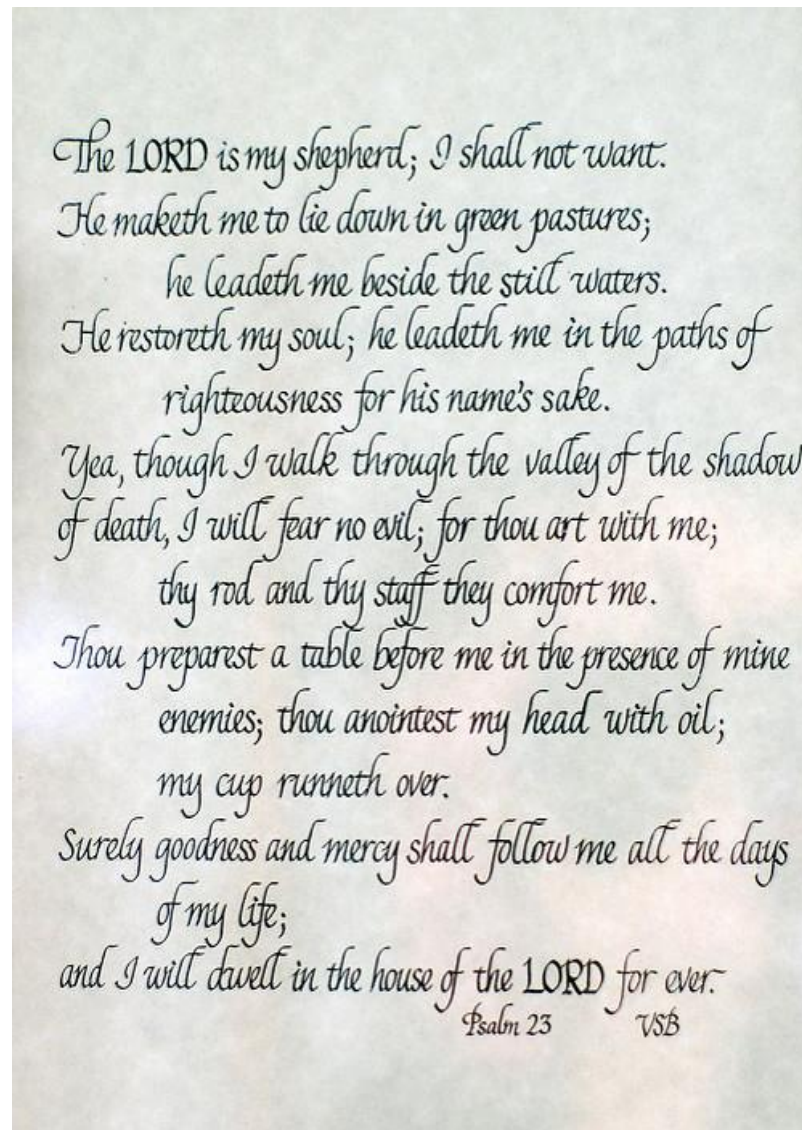 The LORD is my shepherd; I shall not want.
He maketh me to lie down in green pastures;
he leadeth me beside the still waters.
He restoreth my soul; he leadeth me in the paths of
righteousness for his name's sake.
Yea, though I walk through the valley of the shadow
of death, I will fear no evil; for thou art with me;
thy rod and thy staff they comfort me.
Thou preparest a table before me in the presence of mine
enemies; thou anointest my head with oil;
my cup runneth over.
Surely goodness and mercy shall follow me all the days
of my life;
and I will dwell in the house of the LORD for ever.
Psalm 23 VSB